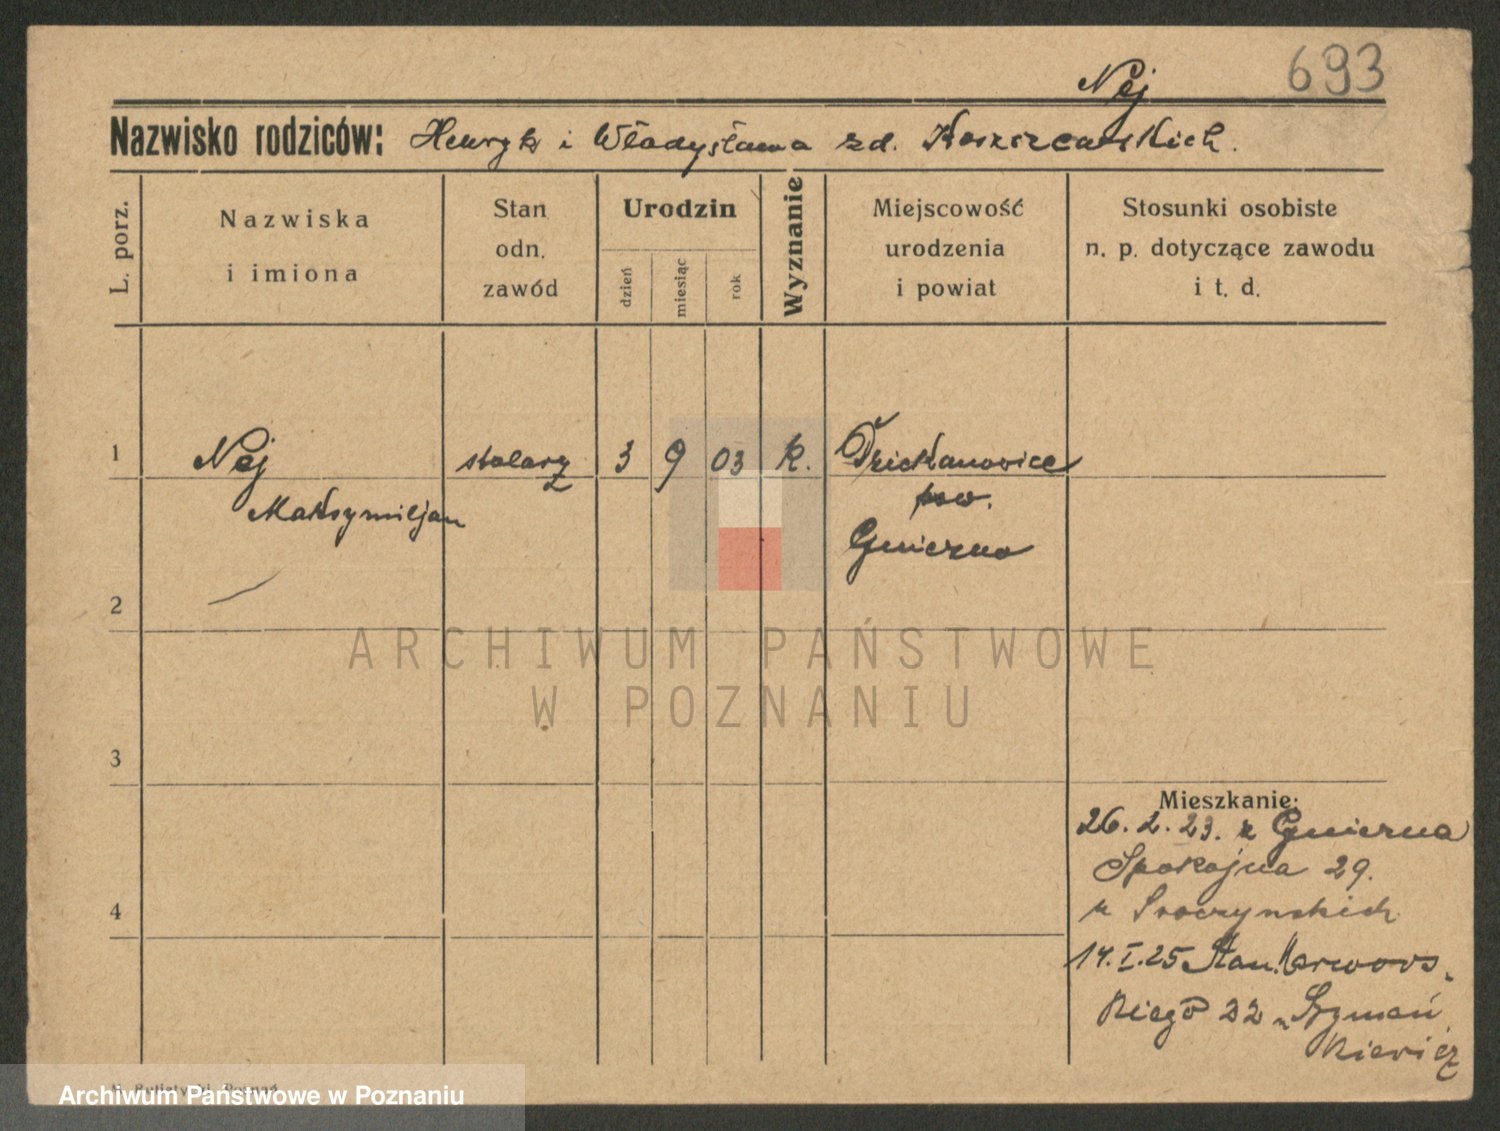 693
Nej
Nazwisko rodziców: Henryk i Władysława zd. Koszczewskich.
L. porz.
Nazwiska
i imiona
Stan
odn.
zawód
Urodzin
dzień
miesiąc
rok
Wyznanie
Miejscowość
urodzenia
i powiat
Stosunki osobiste
n. p. dotyczące zawodu
i t. d.
1 Nej stolarz 3 9 03 k. Dziekanowice
Maksymiljan
pow.
Gniezno
2
ARCHIWUM PAŃSTWOWE
W POZNANIU
3
Mieszkanie:
26. 2. 23. z Gniezna
Spokojna 29.
u Sroczyńskich
4
14. I. 25 Stan. Karwows-
kiego 22 u Szymań
kiewicz
Poznań
Archiwum Państwowe w Poznaniu